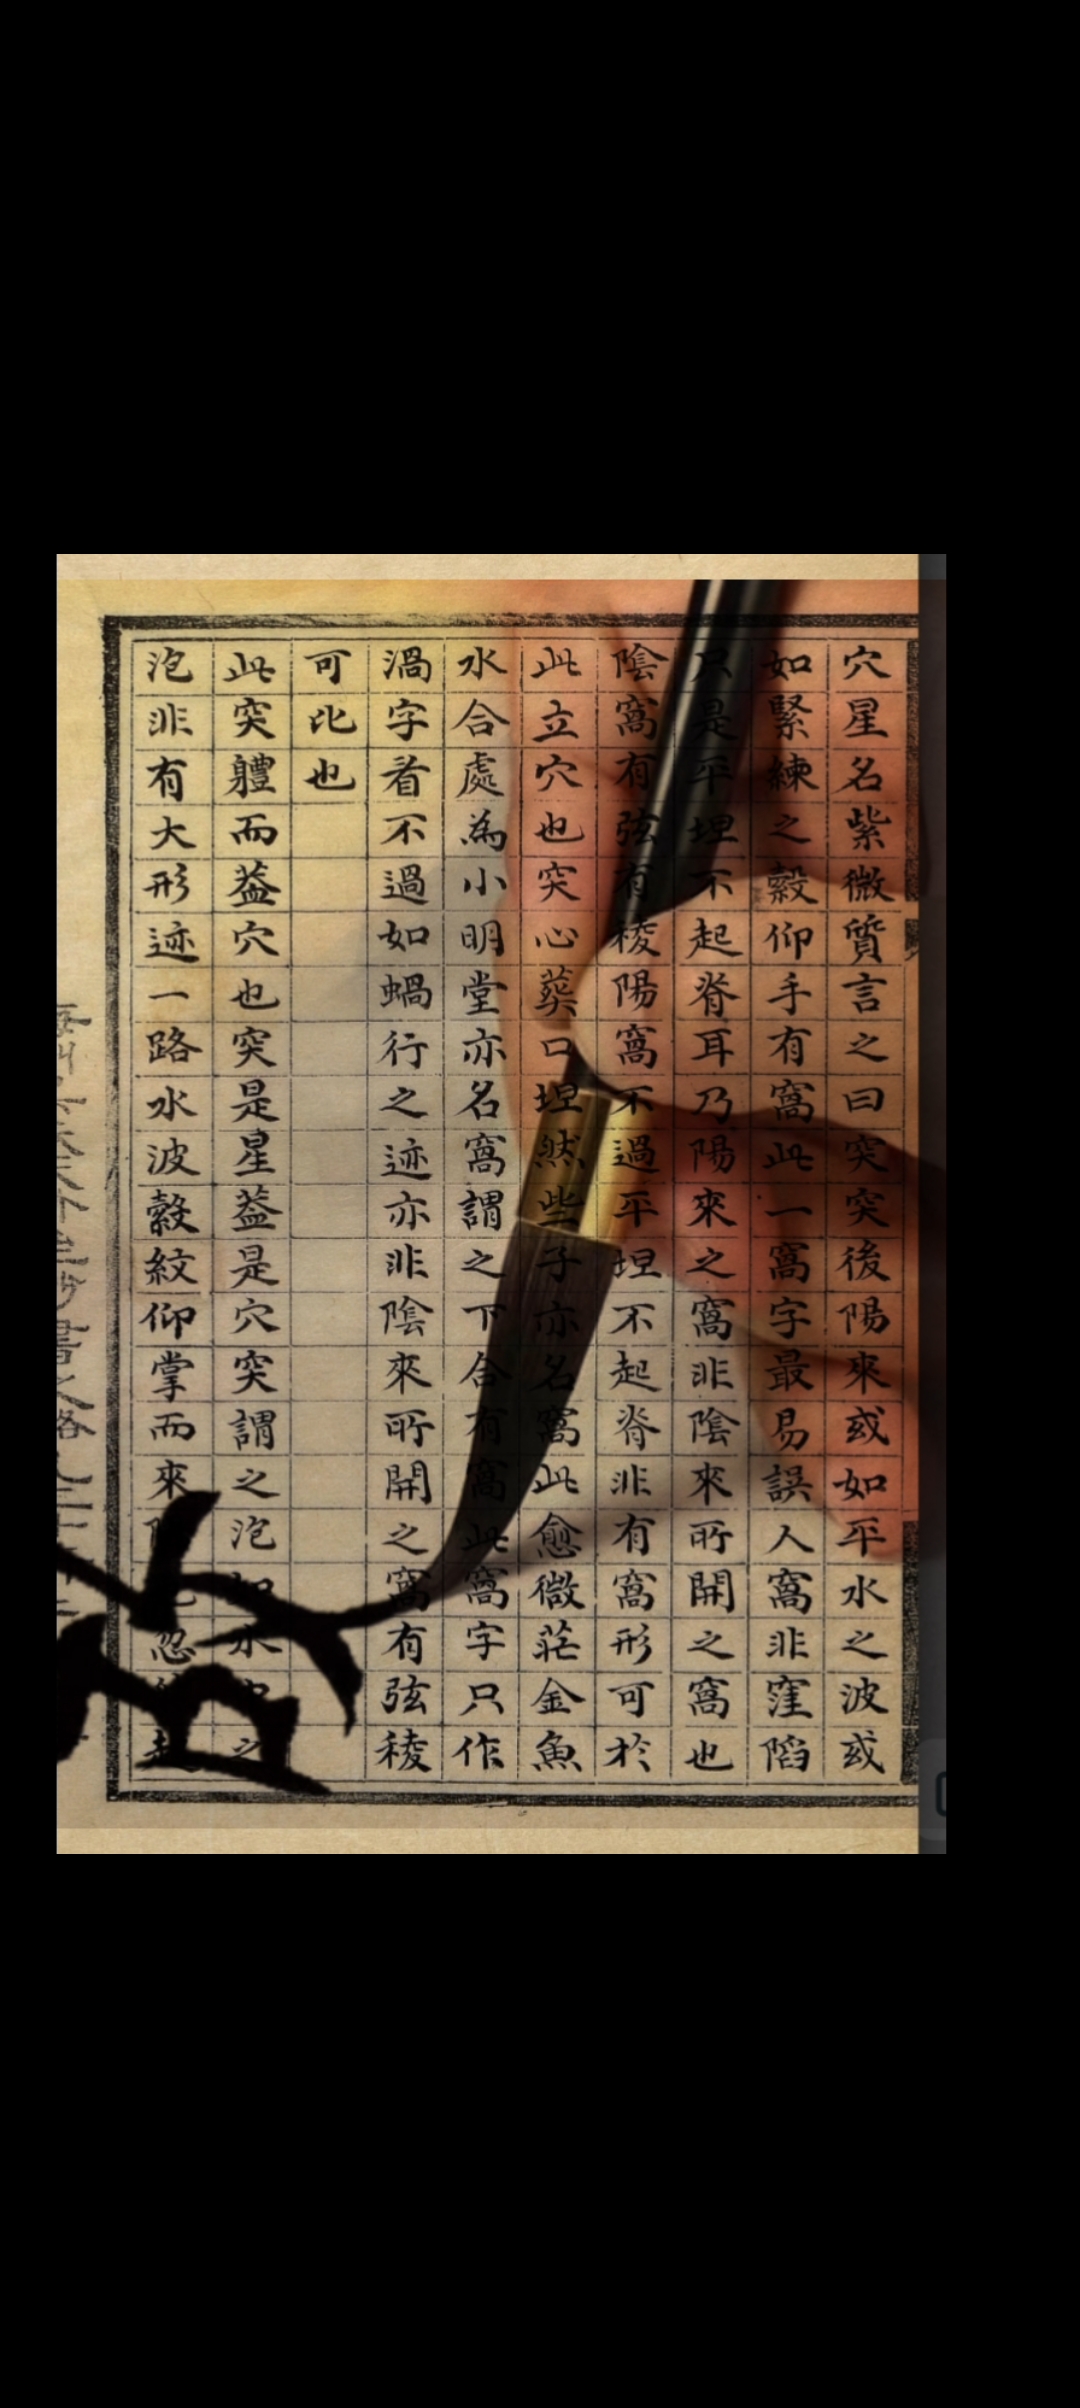 穴星名紫微質言之曰突突後陽來或如平水之波或
如緊練之縠仰手有窩此一窩字最易誤人窩非窪陷
只是平坦不起脊耳乃陽來之窩非陰來所開之窩也
陰窩有弦有稜陽窩不過平坦不起脊非有窩形可於
此立穴也突心葬口坦然些子亦名窩此愈微茫金魚
水合處為小明堂亦名窩謂之下合有窩此窩字只作
渦字看不過如蝸行之迹亦非陰來所開之窩有弦稜
可比也
此突軆而葢穴也突是星葢是穴突謂之泡如水
泡非有大形迹一路水波縠紋仰掌而來忽